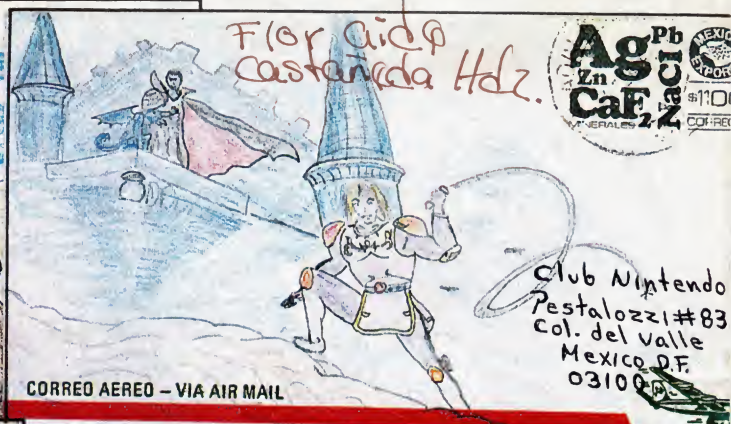 Flor aida
Castañeda Hdz.
Ag Pb
Zn
CaF2
NaCl
MINERALES
MEXICO
EXPORTA
$1100
CORREO
Club Nintendo
Pestalozzi #83
Col. del valle
Mexico D.F.
03100
CORREO AEREO – VIA AIR MAIL